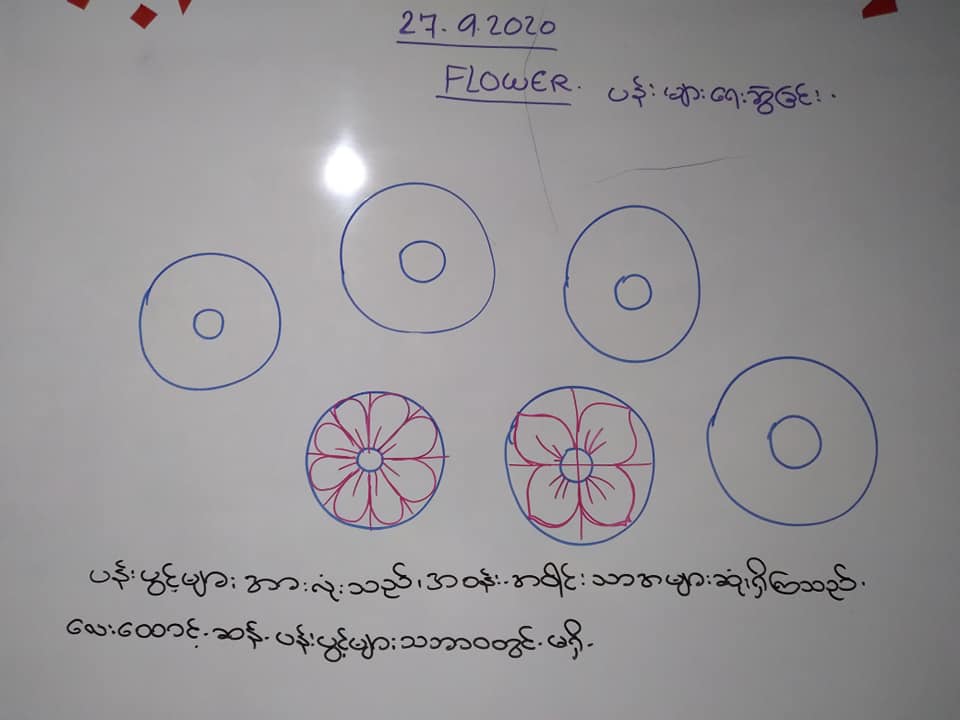 27.9.2020
FLOWER. ပန်းများရေးဆွဲခြင်း.
ပန်းပွင့်များ အားလုံးသည်၊ အဝန်း.အဝိုင်းသာအများဆုံးရှိကြသည်.
လေးထောင့်.ဆန်.ပန်းပွင့်များ သဘာဝတွင်.မရှိ.